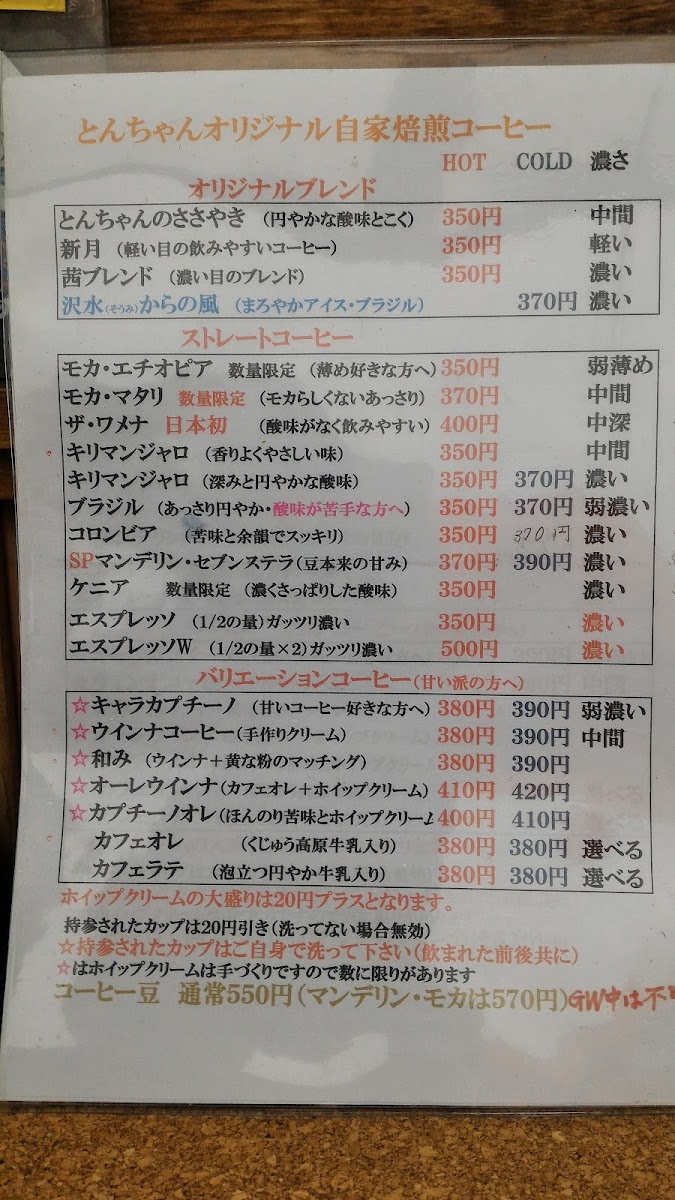 とんちゃんオリジナル自家焙煎コーヒー
HOT COLD 濃さ
オリジナルブレンド
とんちゃんのささやき (円やかな酸味とこく) 350円 中間
新月 (軽い目の飲みやすいコーヒー) 350円 軽い
茜ブレンド (濃い目のブレンド) 350円 濃い
沢水(そうみ)からの風 (まろやかアイス・ブラジル) 370円 濃い
ストレートコーヒー
モカ・エチオピア 数量限定 (薄め好きな方へ) 350円 弱薄め
モカ・マタリ 数量限定 (モカらしくないあっさり) 370円 中間
ザ・ワメナ 日本初 (酸味がなく飲みやすい) 400円 中深
キリマンジャロ (香りよくやさしい味) 350円 中間
キリマンジャロ (深みと円やかな酸味) 350円 370円 濃い
ブラジル (あっさり円やか・酸味が苦手な方へ) 350円 370円 弱濃い
コロンビア (苦味と余韻でスッキリ) 350円 370円 濃い
SPマンデリン・セブンステラ(豆本来の甘み) 370円 390円 濃い
ケニア 数量限定 (濃くさっぱりした酸味) 350円 濃い
エスプレッソ (1/2の量)ガッツリ濃い 350円 濃い
エスプレッソW (1/2の量×2)ガッツリ濃い 500円 濃い
バリエーションコーヒー(甘い派の方へ)
☆キャラカプチーノ (甘いコーヒー好きな方へ) 380円 390円 弱濃い
☆ウインナコーヒー(手作りクリーム) 380円 390円 中間
☆和み (ウインナ+黄な粉のマッチング) 380円 390円
☆オーレウインナ(カフェオレ+ホイップクリーム) 410円 420円
☆カプチーノオレ(ほんのり苦味とホイップクリーム 400円 410円
カフェオレ (くじゅう高原牛乳入り) 380円 380円 選べる
カフェラテ (泡立つ円やか牛乳入り) 380円 380円 選べる
ホイップクリームの大盛りは20円プラスとなります。
持参されたカップは20円引き(洗ってない場合無効)
☆持参されたカップはご自身で洗って下さい(飲まれた前後共に)
☆はホイップクリームは手づくりですので数に限りがあります
コーヒー豆 通常550円(マンデリン・モカは570円)GW中は不